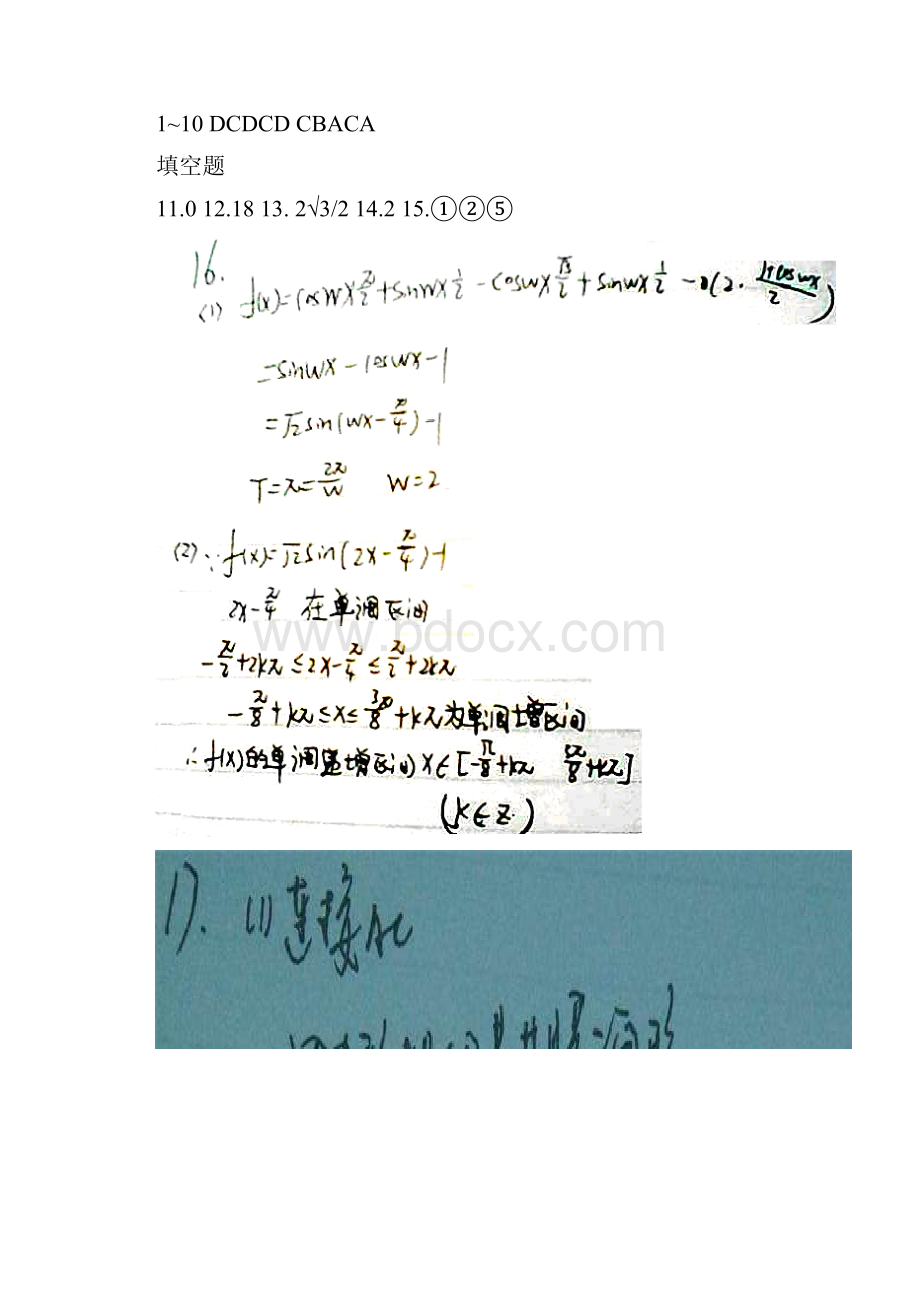 1~10 DCDCD CBACA
填空题
11.0 12.18 13. 2√3/2 14.2 15.①②⑤
16.
(1) f(x)=cosWX π/2+sinWX 1/2-cosWX √3/2+sinWX 1/2-(2·(1+cosWX)/2)
=sinWX-cosWX-1
=√2sin(WX-π/4)-1
T=π=2π/W W=2
(2)∵f(x)=√2sin(2X-π/4)-1
2X-π/4 在单调区间
-π/2+2kπ≤2X-π/4≤π/2+2kπ
-π/8+kπ≤X≤3π/8+kπ为单调增区间
∴f(x)的单调递增区间X∈[-π/8+kπ 3π/8+kπ]
(K∈Z)
www.bdocx.com
17. (1)连接AC